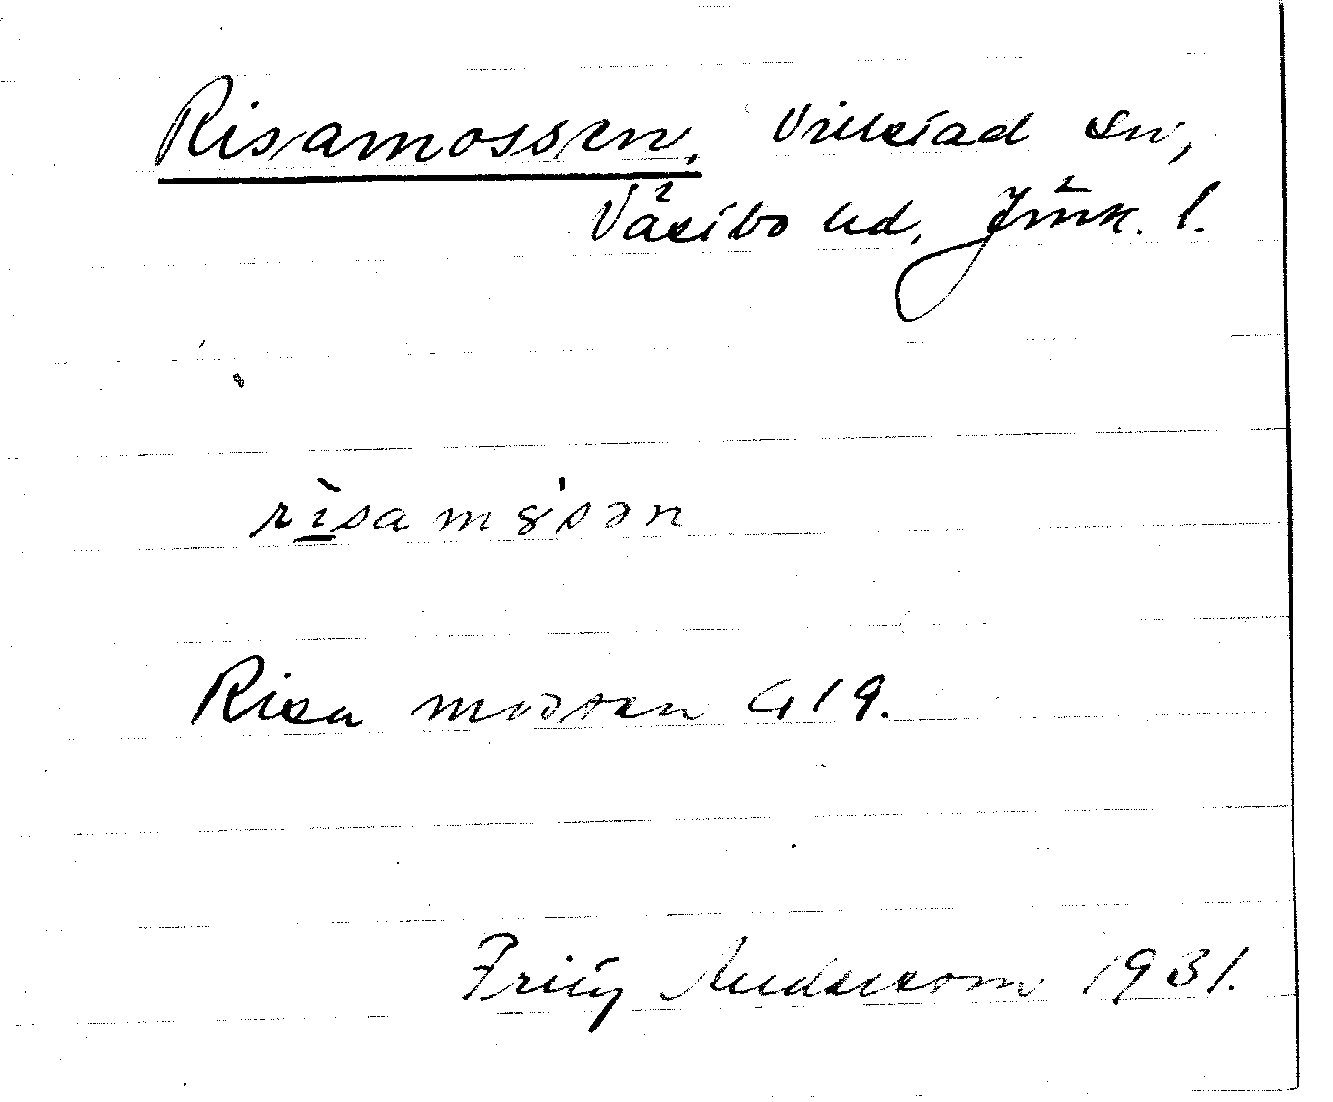 Risamossen, Villstad sn,
Västbo hd, Jönk. l.
rìsamȯsən
Risa mossen G 19.
Fritz Andersson 1931.